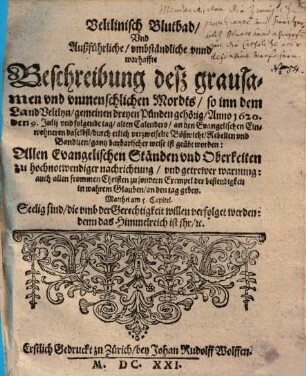 Veltlinisch Blutbad/
Vnd
Außführliche/ vmbständliche vnnd
warhaffte
Beschreibung deß grausa-
men vnd vnmenschlichen Mordts/ so inn dem
Land Veltlin/ gemeinen dreyen Pündten gehörig/ Anno 1620.
den 9. Julij vnd folgende tag/ alten Calenders/ an den Evangelischen Ein-
wohneren daselbst/ durch etlich verzweifelte Böswicht/ Rebellen vnd
Banditen/ gantz barbarischer weise ist geübt worden:
Allen Evangelischen Ständen vnd Oberkeiten
zu hochnotwendiger nachrichtung/ vnd getrewer warnung:
auch allen frommen Christen zu sondern Exempel der bestendigkeit
in wahrem Glauben/ an den tag geben.
Matthei am 5. Capitel.
Seelig sind/ die vmb der Gerechtigkeit willen verfolget werden:
denn das Himmelreich ist ihr/ &c.
Erstlich Gedruckt zu Zürich/ bey Johan Rudolff Wolffen.
M. DC. XXI.